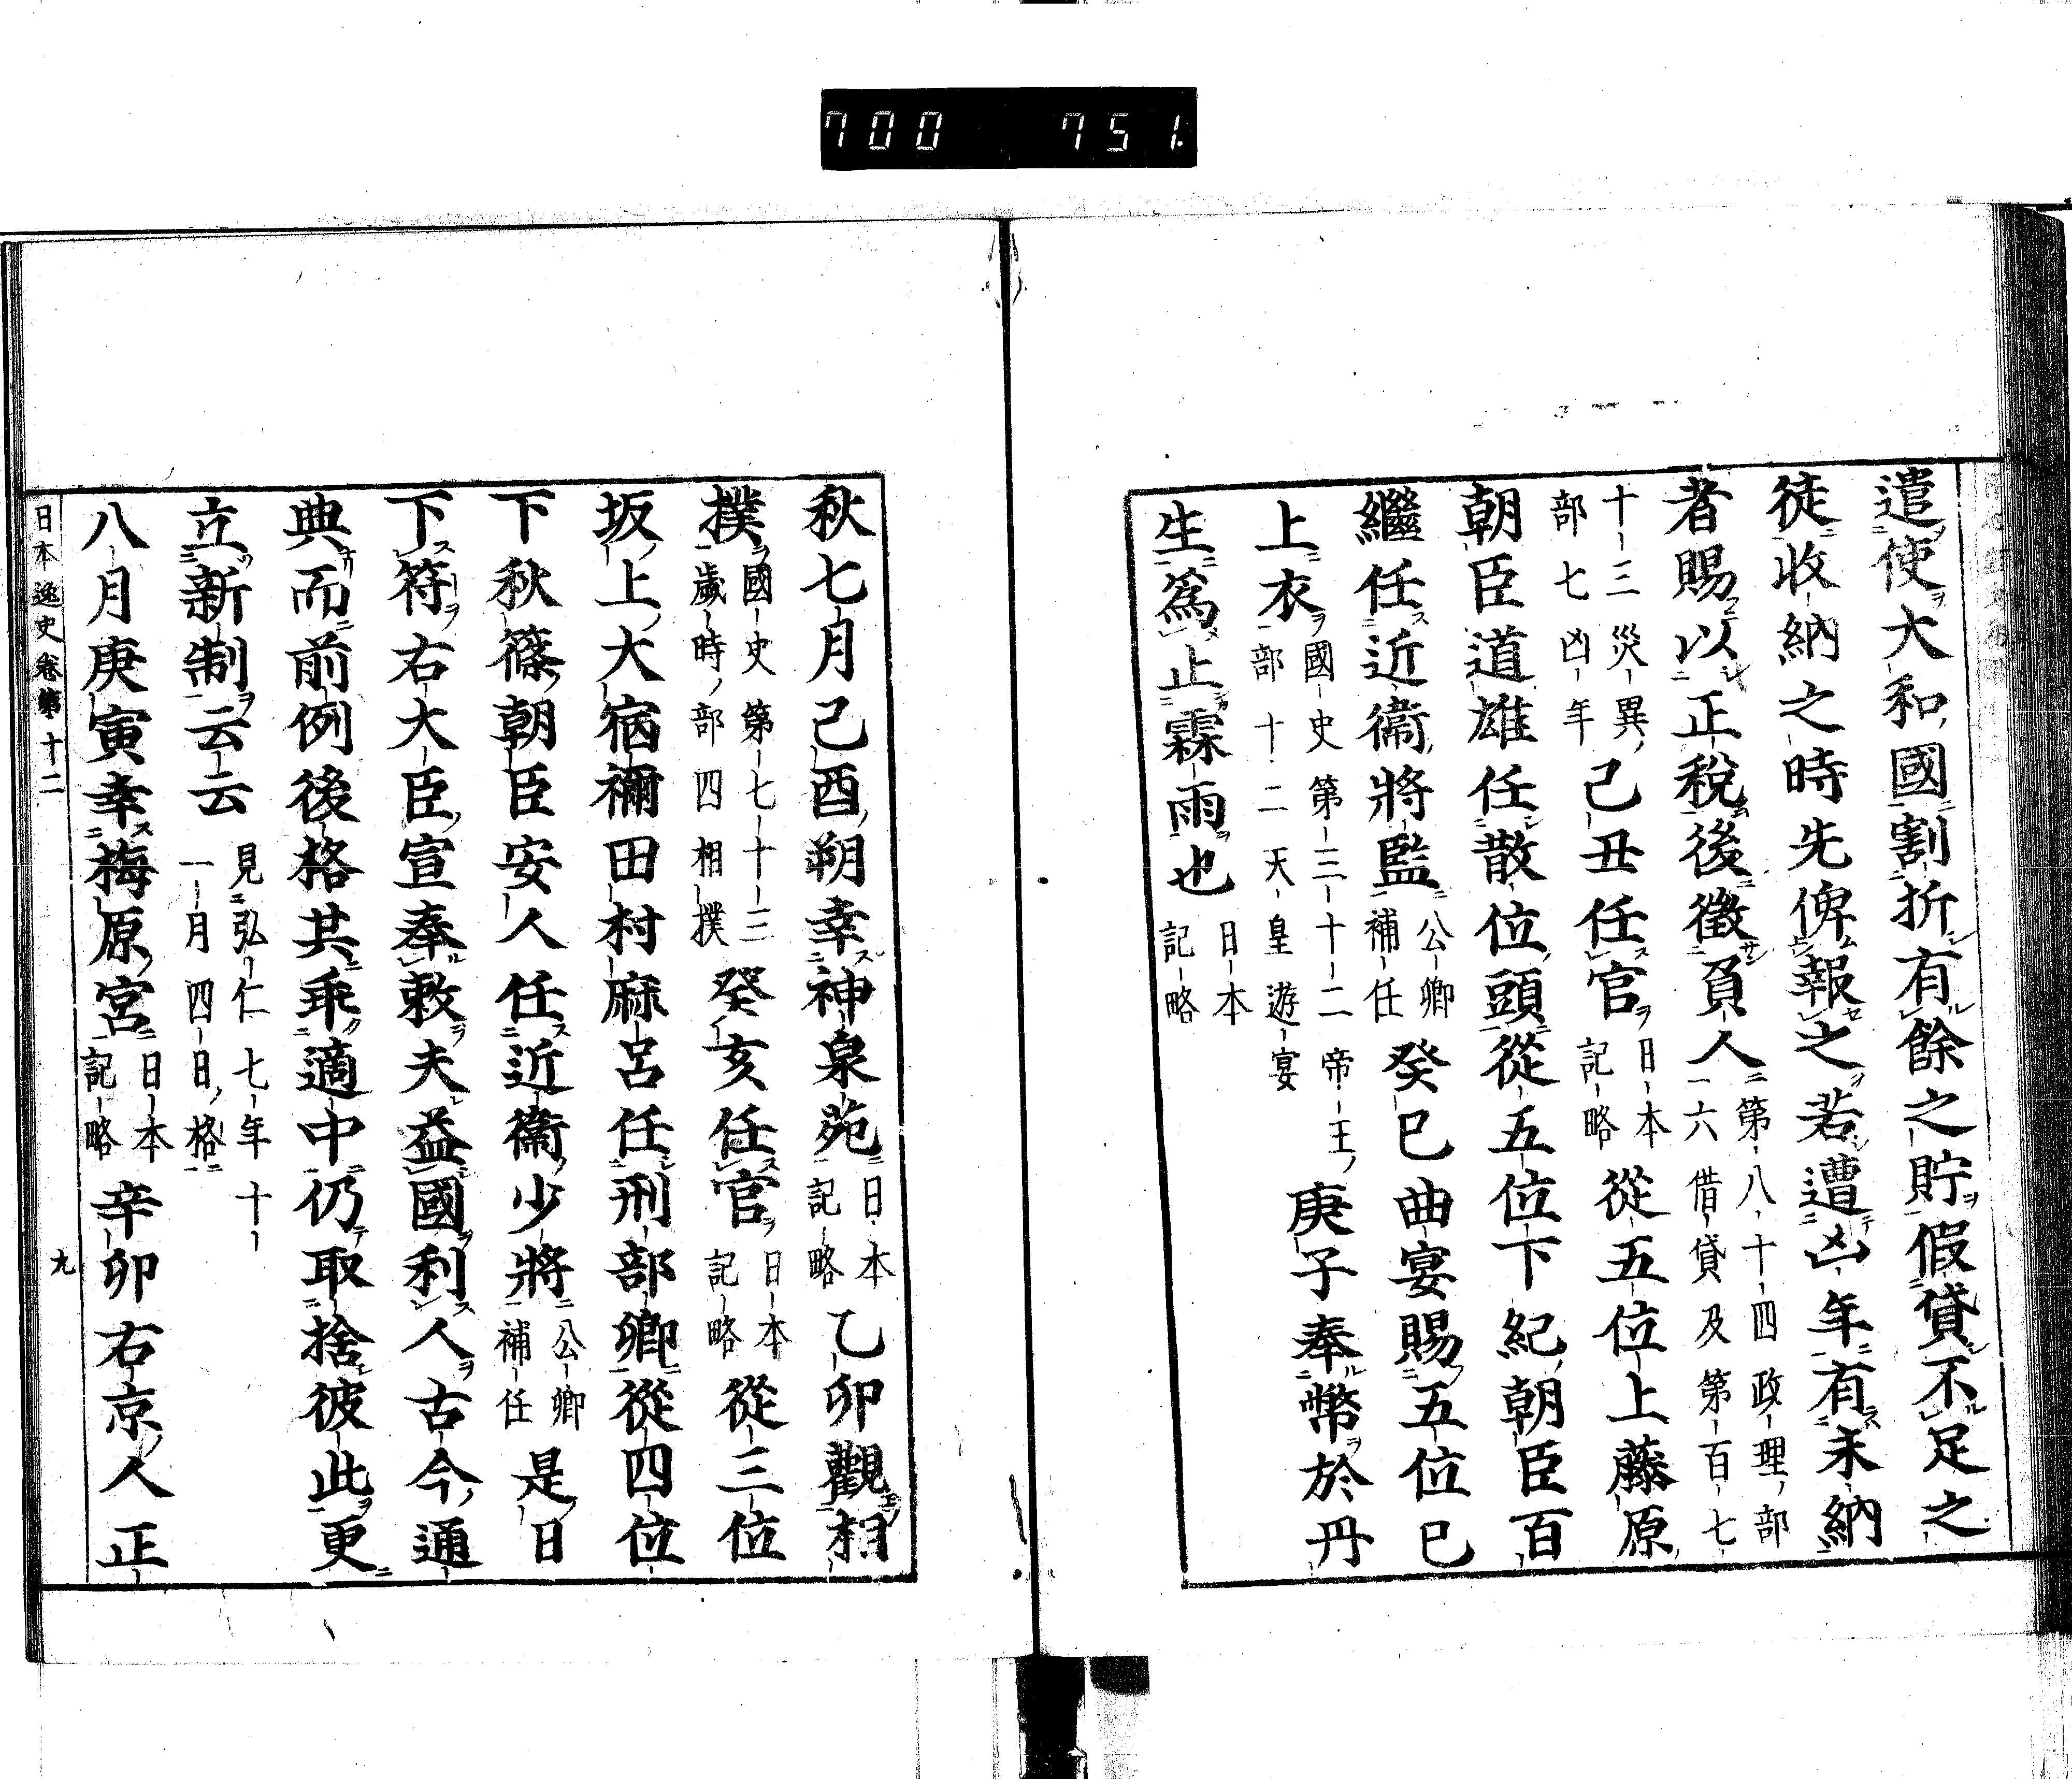 700 751.
遣使大和國割折有餘之貯假貸不足之
徒收納之時先俾報之若遭凶年有未納
者賜以正稅後徵負人第八十四政理部六借貸及第百七
十三災異部七凶年己丑任官日本記略從五位上藤原
朝臣道雄任散位頭從五位下紀朝臣百
繼任近衞將監公卿補任癸巳曲宴賜五位已
上衣國史第三十二帝王部十二天皇遊宴庚子奉幣於丹
生爲止霖雨也日本記略
秋七月己酉朔幸神泉苑日本記略乙卯觀相
撲國史第七十三歲時部四相撲癸亥任官日本記略從三位
坂上大宿禰田村麻呂任刑部卿從四位
下秋篠朝臣安人任近衞少將公卿補任是日
下符右大臣宣奉敕夫益國利人古今通
典而前例後格其乖適中仍取捨彼此更
立新制云云見弘仁七年十一月四日格
八月庚寅幸梅原宮日本記略辛卯右京人正
日本逸史卷第十二 九